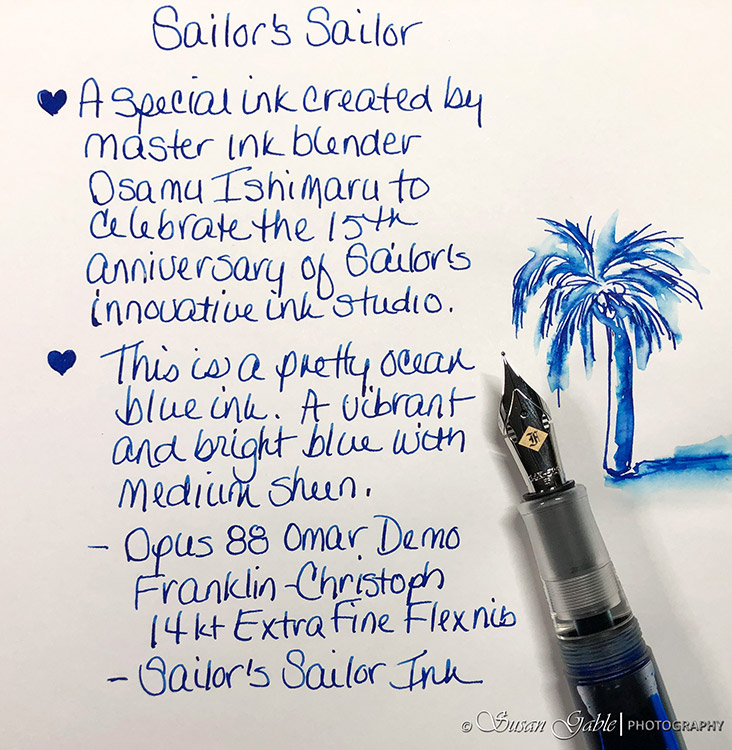 Sailor's Sailor
A special ink created by
master ink blender
Osamu Ishimaru to
celebrate the 15th
anniversary of Sailor's
innovative ink studio.
This is a pretty ocean
blue ink. A vibrant
and bright blue with
medium sheen.
- Opus 88 Omar Demo
Franklin-Christoph
14kt Extra Fine Flex nib
- Sailor's Sailor Ink
© Susan Gable | PHOTOGRAPHY